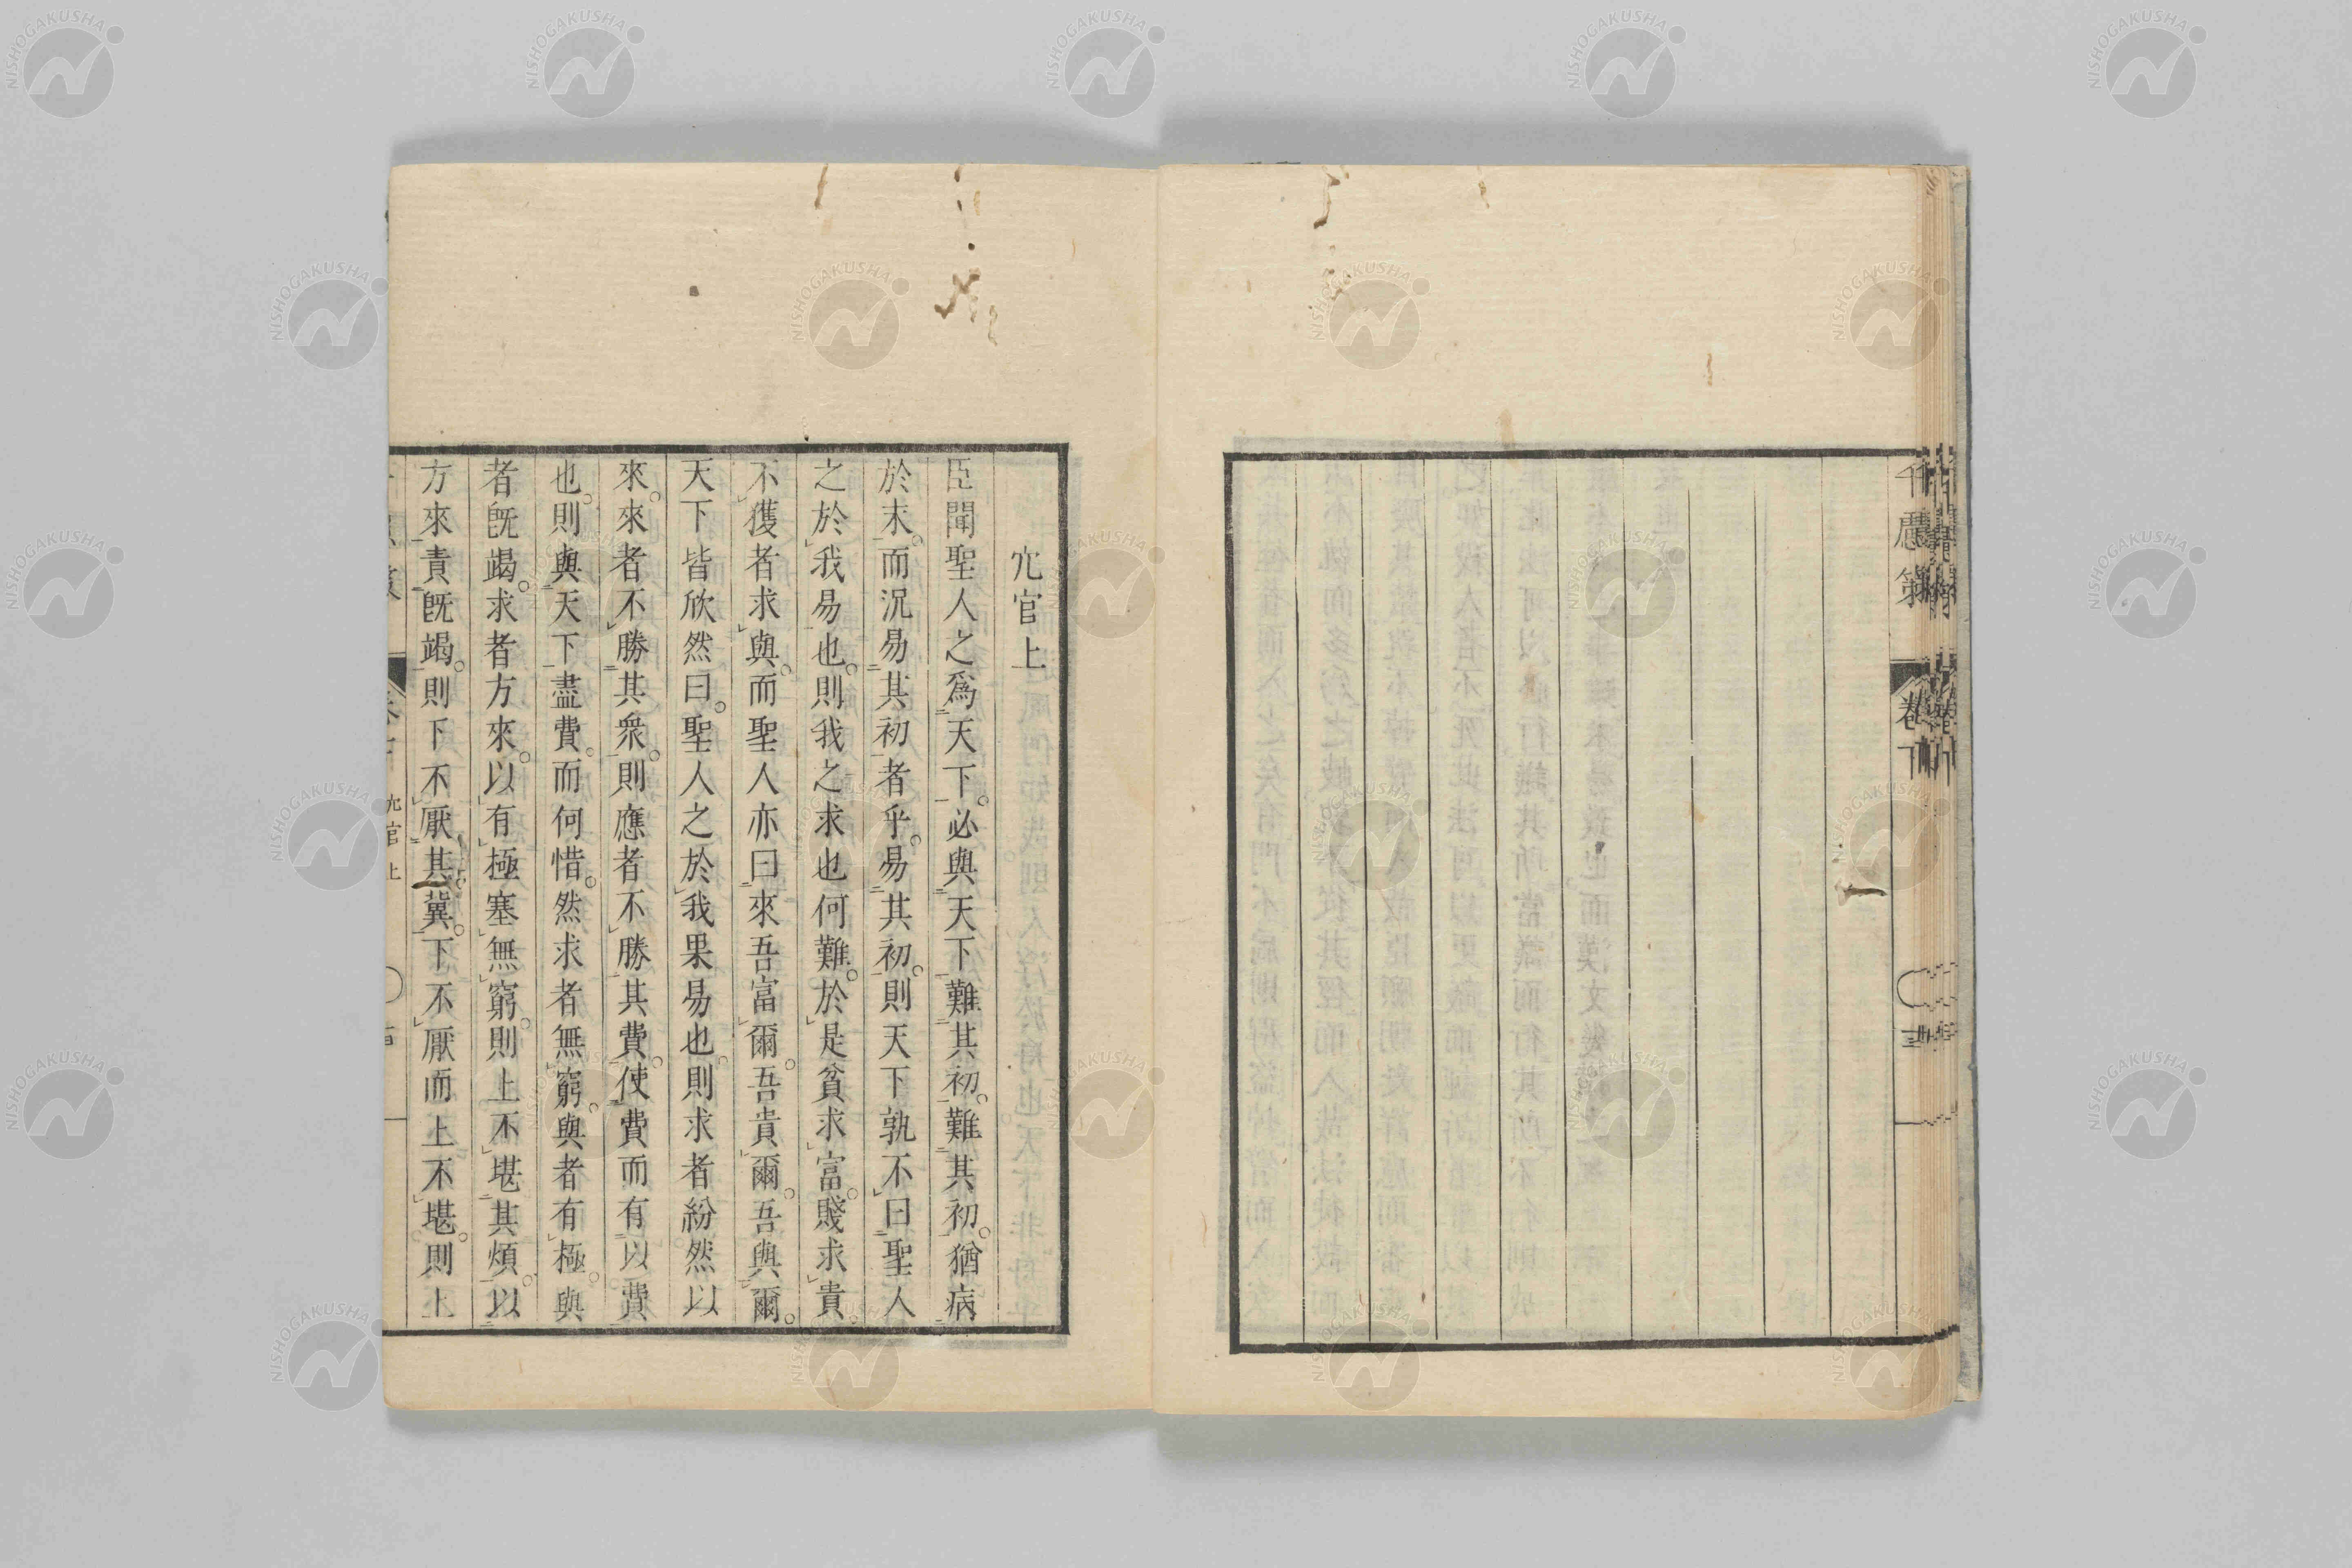 千慮策
卷下
冗官上
臣聞聖人之爲天下必與天下難其初難其初猶病
於末而況易其初者乎易其初則天下孰不曰聖人
之於我易也則我之求也何難於是貧求富賤求貴
不獲者求與而聖人亦曰來吾富爾吾貴爾吾與爾
天下皆欣然曰聖人之於我果易也則求者紛然以
來來者不勝其衆則應者不勝其費使費而有以費
也則與天下盡費而何惜然求者無窮與者有極與
者旣竭求者方來以有極塞無窮則上不堪其煩以
方來責旣竭則下不厭其冀下不厭而上不堪則上
冗官上
NISHOGAKUSHA